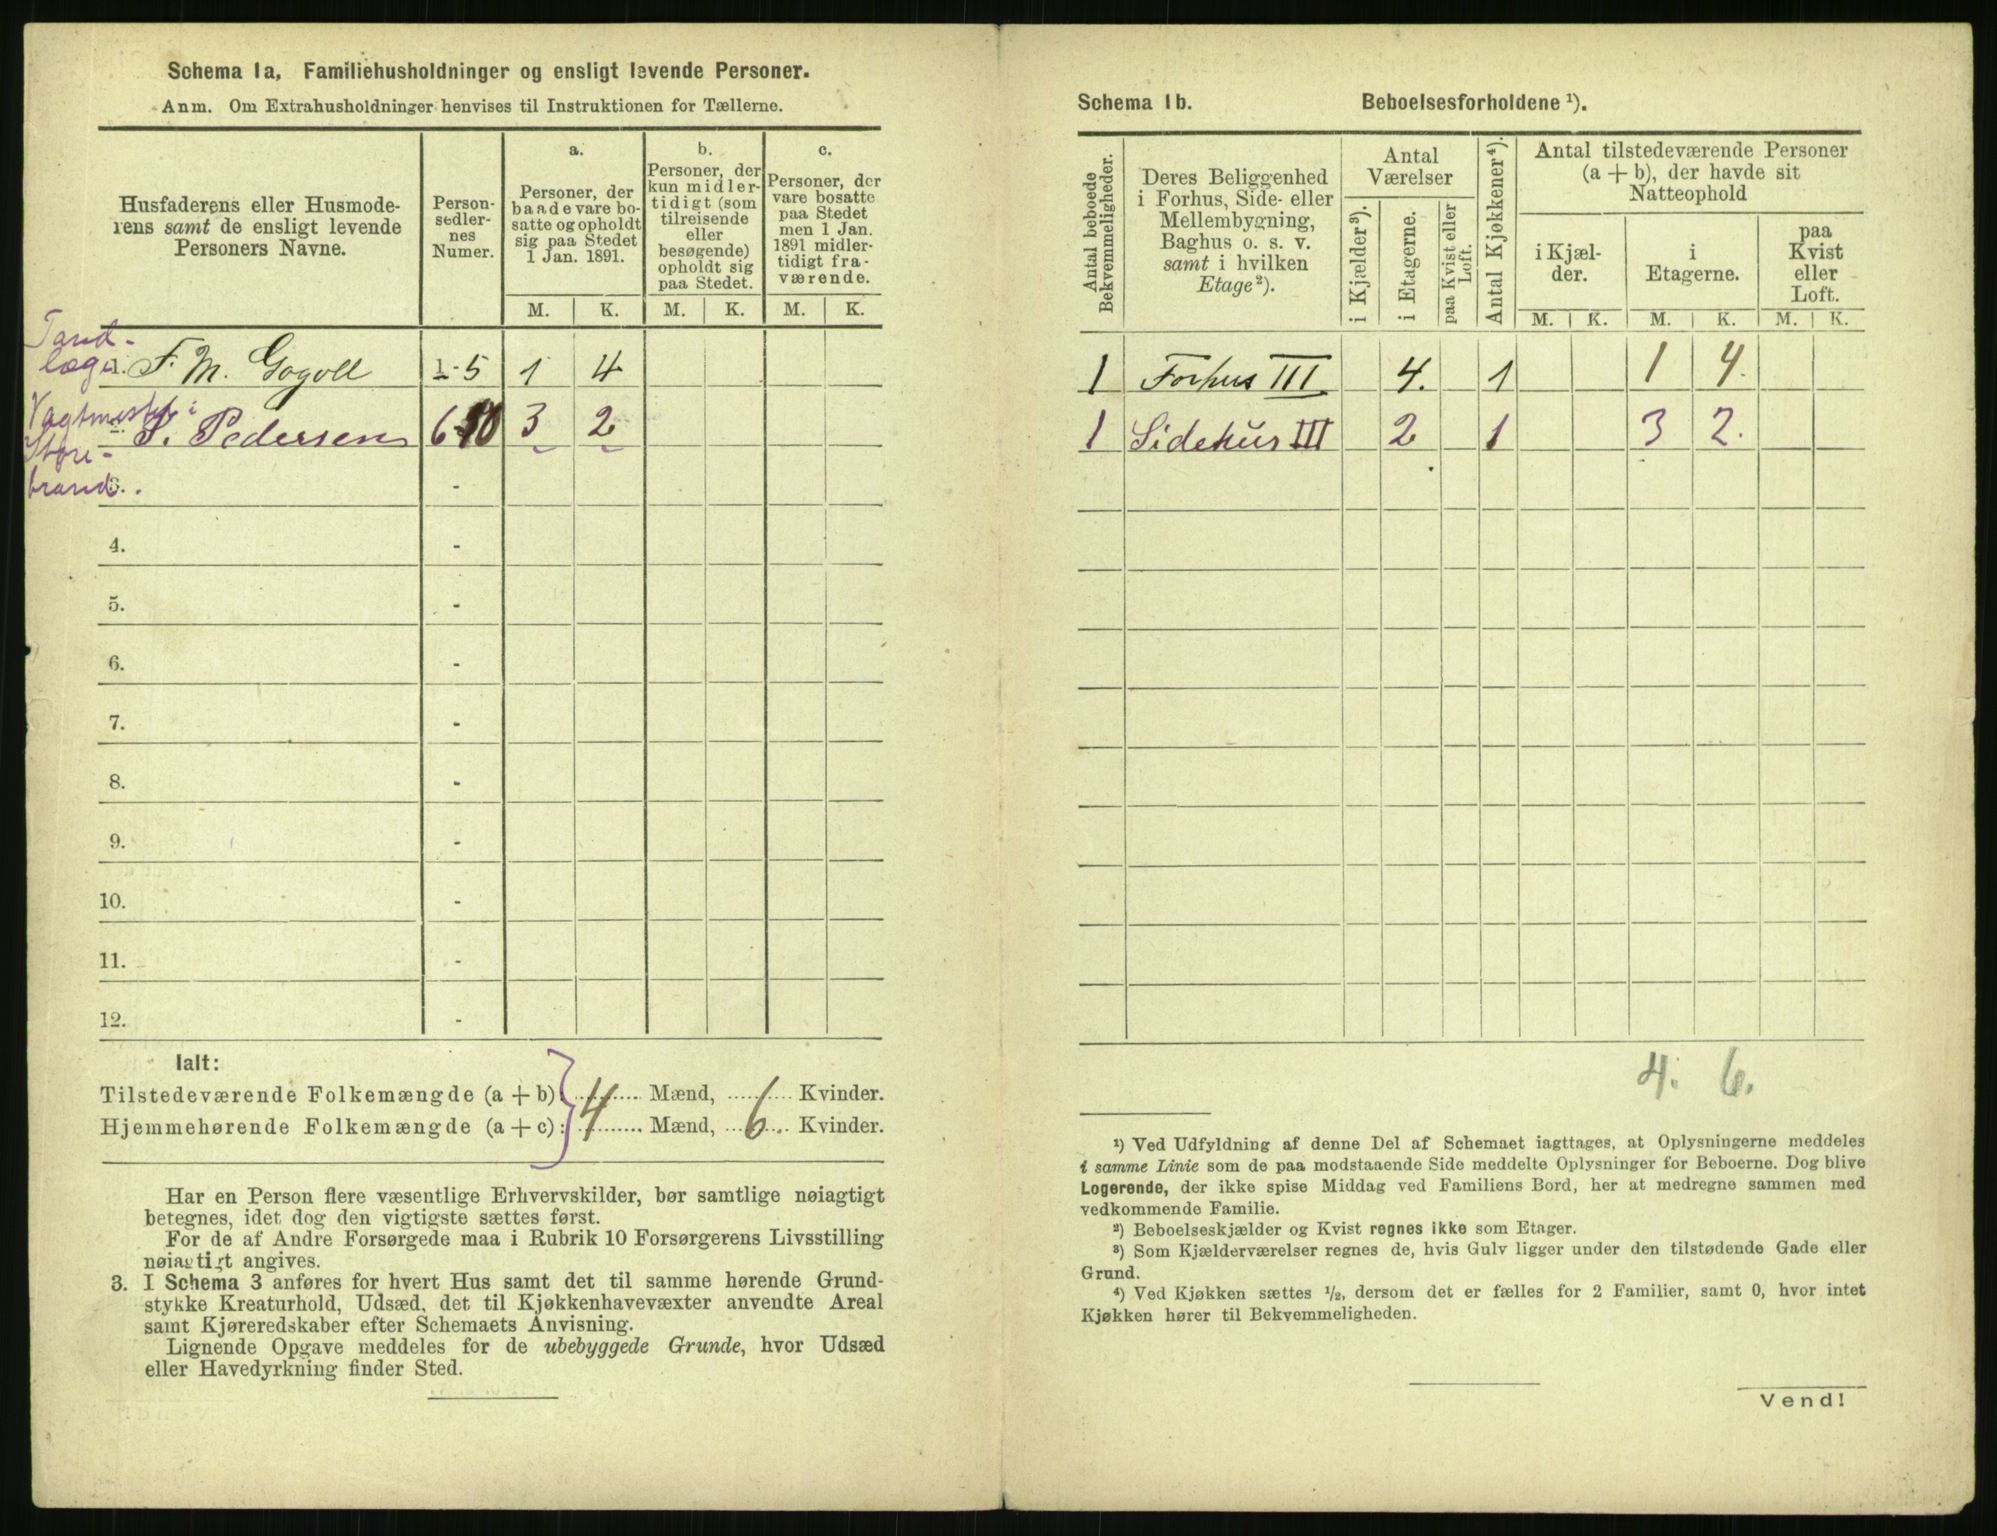 Schema 1a, Familiehusholdninger og ensligt levende Personer.
Anm. Om Extrahusholdninger henvises til Instruktionen for Tællerne.
Husfaderens eller Husmode-
rens samt de ensligt levende
Personers Navne.
Person-
sedler-
nes
Numer.
a.
Personer, der
baade vare bo-
satte og opholdt
sig paa Stedet
1 Jan. 1891.
b.
Personer, der
kun midler-
tidigt (som
tilreisende
eller
besøgende)
opholdt sig
paa Stedet.
c.
Personer, der
vare bosatte
paa Stedet
men 1 Jan.
1891 midler-
tidigt fra-
værende.
M. K. M. K. M. K.
Tand-
læge 1. F. M. Gogoll 1-5 1 4
Vagtmester i
2. S. Pedersen 6-10 3 2
Store-
brand. 3. -
4. -
5. -
6. -
7. -
8. -
9. -
10. -
11. -
12. -
Ialt:
Tilstedeværende Folkemængde (a + b): 4 Mænd, 6 Kvinder.
Hjemmehørende Folkemængde (a + c): Mænd, Kvinder.
Har en Person flere væsentlige Erhvervskilder, bør samtlige nøiagtigt
betegnes, idet dog den vigtigste sættes først.
For de af Andre Forsørgede maa i Rubrik 10 Forsørgerens Livsstilling
nøiagtigt angives.
3. I Schema 3 anføres for hvert Hus samt det til samme hørende Grund-
stykke Kreaturhold, Udsæd, det til Kjøkkenhavevæxter anvendte Areal
samt Kjøreredskaber efter Schemaets Anvisning.
Lignende Opgave meddeles for de ubebyggede Grunde, hvor Udsæd
eller Havedyrkning finder Sted.
Schema 1b. Beboelsesforholdene ¹).
Antal beboede
Bekvemmeligheder.
Deres Beliggenhed
i Forhus, Side- eller
Mellembygning,
Baghus o. s. v.
samt i hvilken
Etage²).
Antal
Værelser
i Kjælder³).
i Etagerne.
paa Kvist eller
Loft.
Antal Kjøkkener⁴).
Antal tilstedeværende Personer
(a + b), der havde sit
Natteophold
i Kjæl-
der.
i
Etagerne.
paa
Kvist
eller
Loft.
M. K. M. K. M. K.
1 Forhus III 4. 1 1 4.
1 Sidehus III 2 1 3 2.
4. 6.
¹) Ved Udfyldning af denne Del af Schemaet iagttages, at Oplysningerne meddeles
i samme Linie som de paa modstaaende Side meddelte Oplysninger for Beboerne. Dog blive
Logerende, der ikke spise Middag ved Familiens Bord, her at medregne sammen med
vedkommende Familie.
²) Beboelseskjælder og Kvist regnes ikke som Etager.
³) Som Kjælderværelser regnes de, hvis Gulv ligger under den tilstødende Gade eller
Grund.
⁴) Ved Kjøkken sættes ½, dersom det er fælles for 2 Familier, samt 0, hvor intet
Kjøkken hører til Bekvemmeligheden.
Vend!